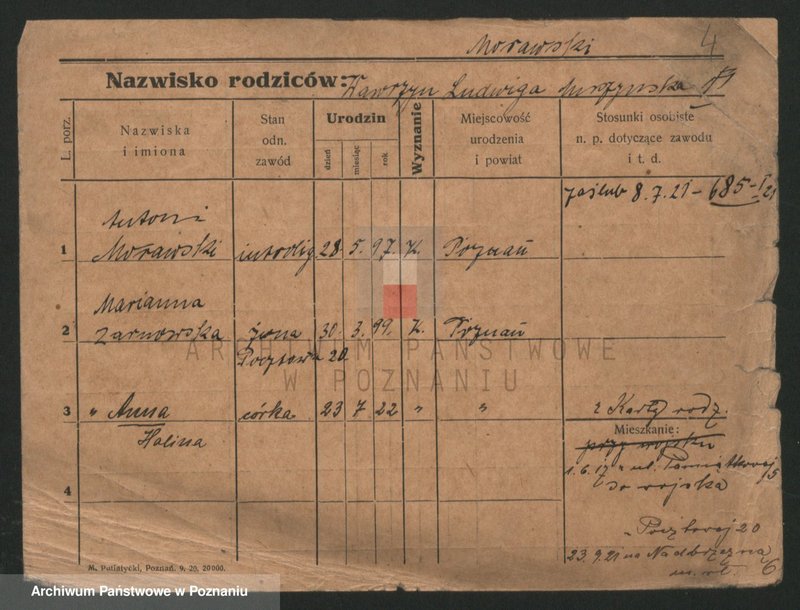 Morawski
4
Nazwisko rodziców: Wawrzyn Ludwiga
L. porz.
Nazwiska i imiona
Stan odn. zawód
Urodzin
dzień
miesiąc
rok
Wyznanie
Miejscowość urodzenia i powiat
Stosunki osobiste n. p. dotyczące zawodu i t. d.
zaślub 8.7.21 - 685-I/21
Antoni
1 Morawski introlig. 28. 5. 97. K. Poznań
Marianna
2 Żarnowska żona 30. 3. 99. K. Poznań
Pocztowa 20
3 " Anna córka 23 7 22 " " z Karty rodz.
Halina
Mieszkanie:
przy wojsku
1.6.17 " ul. Pamiątkowej 5
do wojska
4
" Pocztowej 20
23.9.21 na Nadbrzeżną 6
M. Putiatycki, Poznań. 9. 20. 20000.
ARCHIWUM PAŃSTWOWE
W POZNANIU
Archiwum Państwowe w Poznaniu